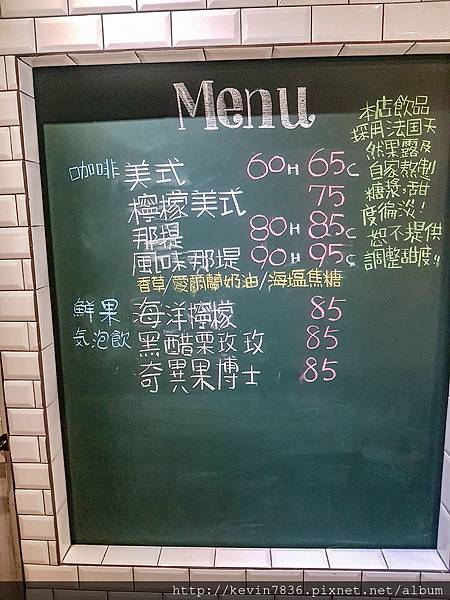 Menu
咖啡 美式 60H 65C
檸檬美式 75
那堤 80H 85C
風味那堤 90H 95C
香草/愛爾蘭奶油/海塩焦糖
鮮果 海洋檸檬 85
気泡飲 黑醋栗玫玫 85
奇異果博士 85
本店飲品
採用法国天
然果露及
自家熬制
糖漿,甜
度偏淡!
恕不提供
調整甜度!!
http://kevin7836.pixnet.net/album